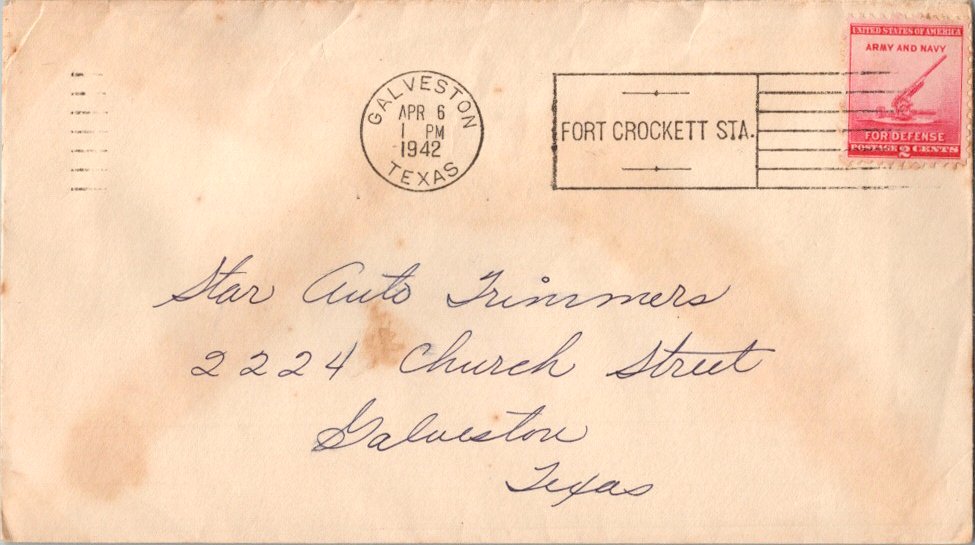 GALVESTON
APR 6
1 PM
1942
TEXAS
FORT CROCKETT STA.
UNITED STATES OF AMERICA
ARMY AND NAVY
FOR DEFENSE
POSTAGE 2 CENTS
Star Auto Trimmers
2224 Church Street
Galveston
Texas